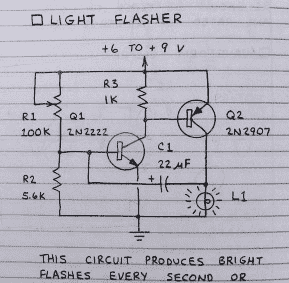 LIGHT FLASHER
+6 TO +9 V
R3
1K
R1
100K
Q1
2N2222
Q2
2N2907
C1
22 µF
+
R2
5.6K
L1
THIS CIRCUIT PRODUCES BRIGHT
FLASHES EVERY SECOND OR